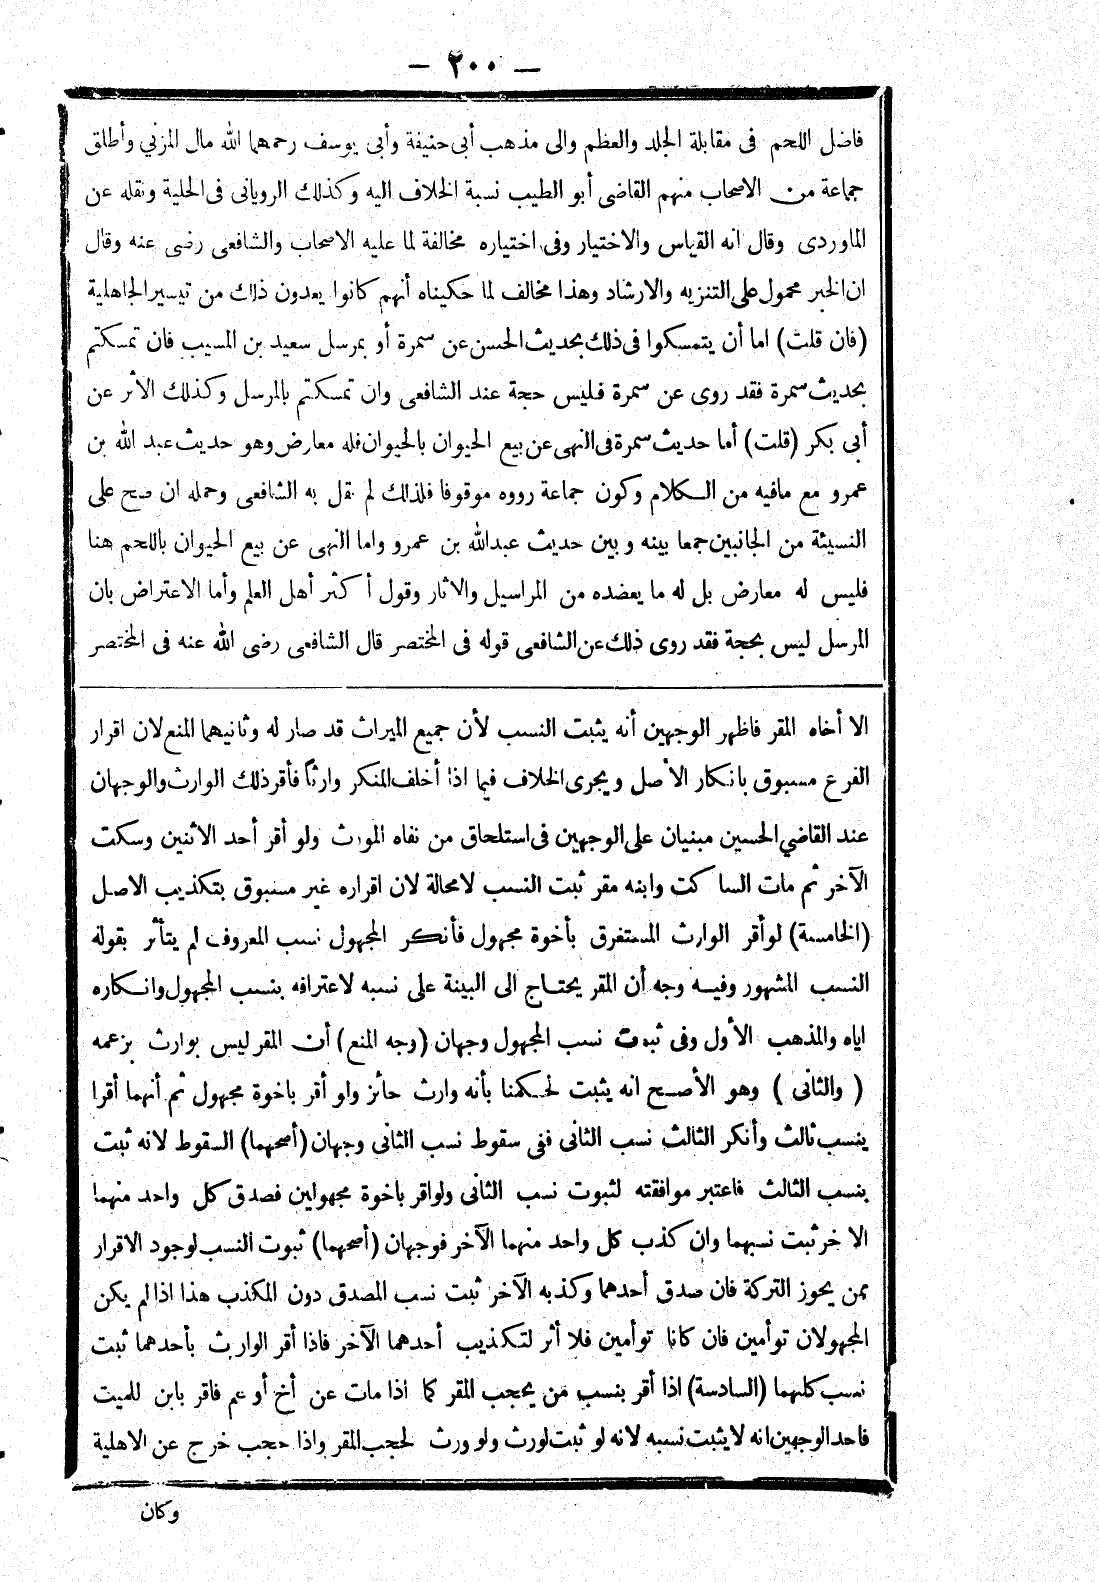 — ٢٠٠ —
فاضل اللحم فى مقابلة الجلد والعظم والى مذهب أبى حنيفة وأبى يوسف رحمهما الله مال المزنى وأطلق
جماعة من الاصحاب منهم القاضى أبو الطيب نسبة الخلاف اليه وكذلك الرويانى فى الحلية ونقله عن
الماوردى وقال انه القياس والاختيار وفى اختياره مخالفة لما عليه الاصحاب والشافعى رضى عنه وقال
ان الخبر محمول على التنزيه والارشاد وهذا مخالف لما حكيناه أنهم كانوا يعدون ذلك من تيسير الجاهلية
(فان قلت) اما أن يتمسكوا فى ذلك بحديث الحسن عن سمرة أو بمرسل سعيد بن المسيب فان تمسكتم
بحديث سمرة فقد روى عن سمرة فليس حجة عند الشافعى وان تمسكتم بالمرسل وكذلك الأثر عن
أبى بكر (قلت) أما حديث سمرة فى النهى عن بيع الحيوان بالحيوان فله معارض وهو حديث عبد الله بن
عمرو مع مافيه من الكلام وكون جماعة رووه موقوفا فلذلك لم نقل به الشافعى وحمله ان صح على
النسيئة من الجانبين جمعا بينه وبين حديث عبدالله بن عمرو واما النهى عن بيع الحيوان باللحم هنا
فليس له معارض بل له ما يعضده من المراسيل والاثار وقول أكثر أهل العلم وأما الاعتراض بان
المرسل ليس بحجة فقد روى ذلك عن الشافعى قوله فى المختصر قال الشافعى رضى الله عنه فى المختصر
الا أخاه المقر فاظهر الوجهين أنه يثبت النسب لأن جميع الميراث قد صار له وثانيهما المنع لان اقرار
الفرع مسبوق بانكار الأصل ويجرى الخلاف فيما اذا أخلف المنكر وارثاً فأقر ذلك الوارث والوجهان
عند القاضي الحسين مبنيان على الوجهين فى استلحاق من نفاه المورث ولو أقر أحد الاثنين وسكت
الآخر ثم مات الساكت وابنه مقر ثبت النسب لا محالة لان اقراره غير مسبوق بتكذيب الاصل
(الخامسة) لو أقر الوارث المستغرق بأخوة مجهول فأنكر المجهول نسب المعروف لم يتأثر بقوله
النسب المشهور وفيه وجه أن المقر يحتاج الى البينة على نسبه لاعترافه بنسب المجهول وانكاره
اياه والمذهب الأول وفى ثبوت نسب المجهول وجهان (وجه المنع) أن المقر ليس بوارث بزعمه
( والثانى ) وهو الأصح انه يثبت لحكمنا بأنه وارث حائز ولو أقر باخوة مجهول ثم أنهما أقرا
بنسب ثالث وأنكر الثالث نسب الثانى ففى سقوط نسب الثانى وجهان (أصحهما) السقوط لانه ثبت
بنسب الثالث فاعتبر موافقته لثبوت نسب الثانى ولواقر باخوة مجهولين فصدق كل واحد منهما
الاخر ثبت نسبهما وان كذب كل واحد منهما الآخر فوجهان (أصحهما) ثبوت النسب لوجود الاقرار
ممن يحوز التركة فان صدق أحدهما وكذبه الآخر ثبت نسب المصدق دون المكذب هذا اذا لم يكن
المجهولان توأمين فان كانا توأمين فلا أثر لتكذيب أحدهما الآخر فاذا أقر الوارث بأحدهما ثبت
نسب كلهما (السادسة) اذا أقر بنسب من يحجب المقر كما اذا مات عن أخ أو عم فاقر بابن للميت
فاحد الوجهين انه لا يثبت نسبه لانه لو ثبت لورث ولو ورث لحجب المقر واذا حجب خرج عن الاهلية
وكان